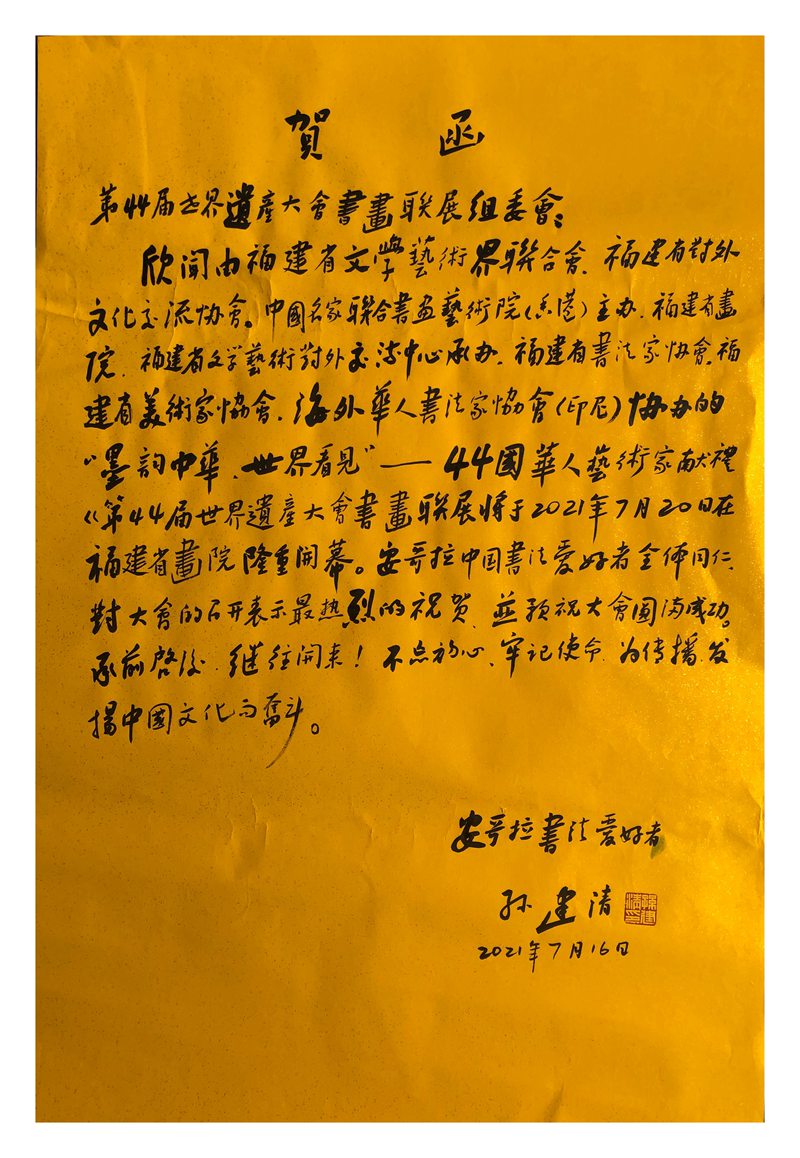 賀 函
第44届世界遺産大會書畫联展组委會:
欣闻由福建省文學藝術界联合會、福建省對外
文化交流协會。中國名家联合書画藝術院(香港)主办、福建省畫
院、福建省文学藝術對外交流中心承办、福建省書法家协會、福
建省美術家協會、海外華人書法家協會(印尼)协办的
“墨韵中華、世界看見”——44國華人藝術家献禮
《第44届世界遺產大會書畫联展将于2021年7月20日在
福建省畫院隆重開幕。安哥拉中国書法愛好者全体同仁、
對大會的召开表示最热烈的祝贺、並预祝大會圆满成功。
承前啓後、継往開来！不忘初心、牢记使命、为传播、发
揚中國文化而奮斗。
安哥拉書法愛好者
孙建清
2021年7月16日